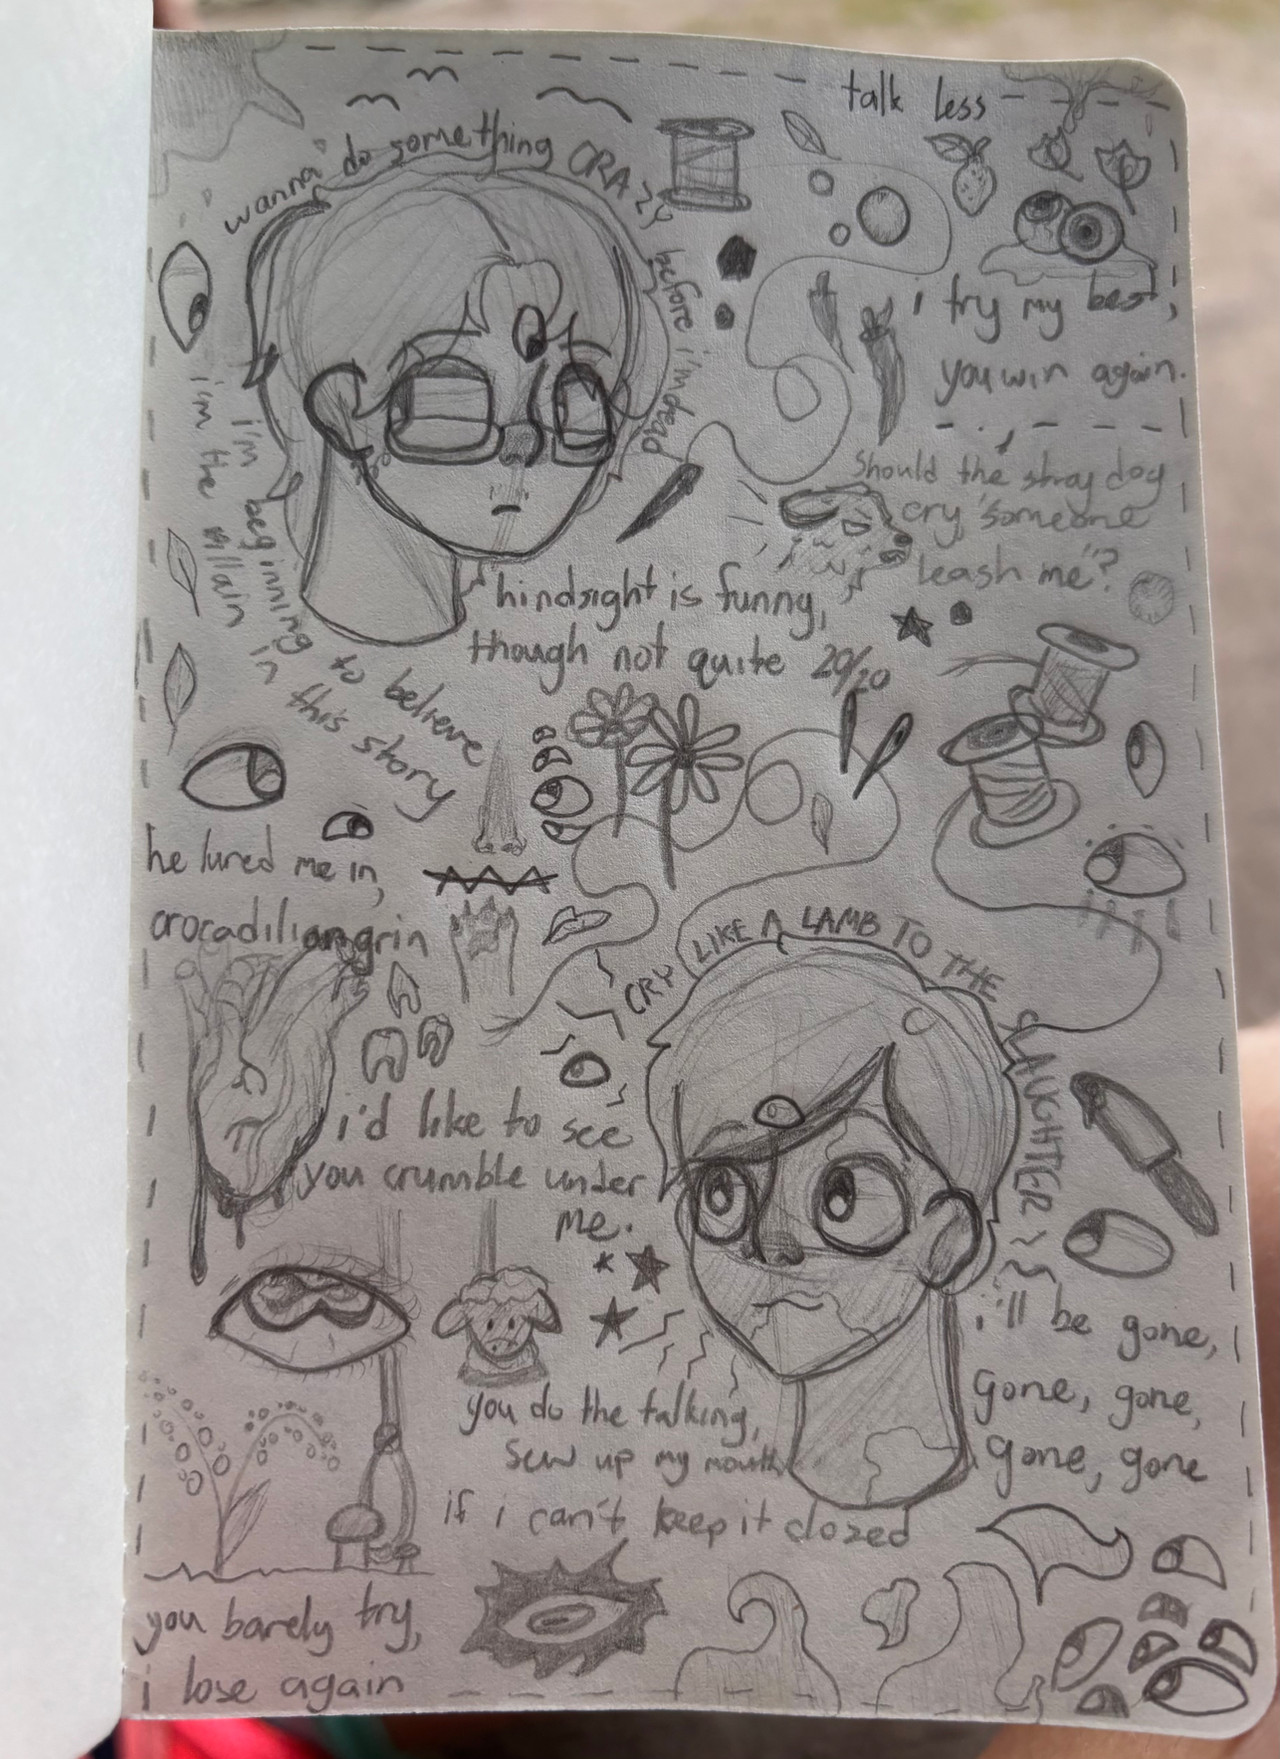 talk less
wanna do something CRAZY before i'm dead
i try my best,
you win again.
should the stray dog
cry "someone
leash me"?
i'm beginning to believe
i'm the villain in this story
hindsight is funny,
though not quite 20/20
he lured me in,
crocadilian grin
CRY LIKE A LAMB TO THE SLAUGHTER
i'd like to see
you crumble under
me.
i'll be gone,
gone, gone,
gone, gone
you do the talking,
sew up my mouth
if i can't keep it clozed
you barely try,
i lose again